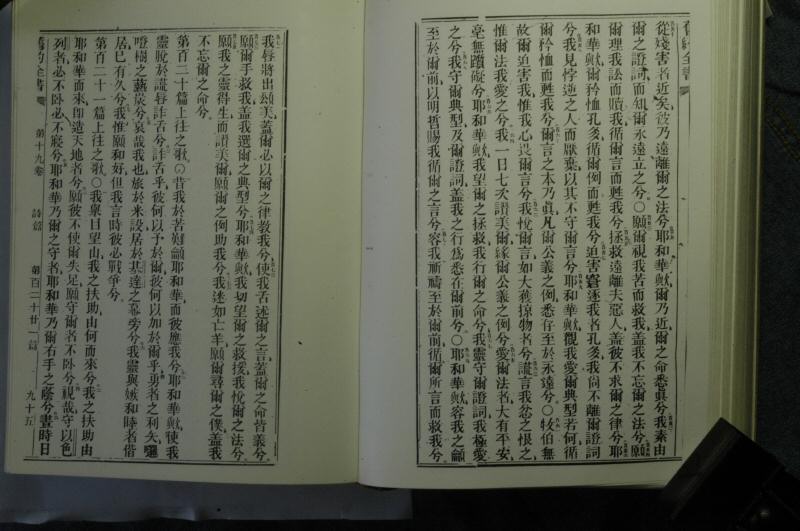 舊約全書
從殘害者近矣彼乃遠離爾之法兮耶和華歟爾乃近爾之命悉眞兮我素由
爾之證詞而知爾永遠立之兮○願爾視我苦而救我蓋我不忘爾之法兮願
爾理我訟而贖我循爾言而甦我兮拯救遠離夫惡人蓋彼不求爾之律兮耶
和華歟爾矜恤孔多循爾例而甦我兮迫害窘逐我者孔多我尙不離爾證詞
兮我見悖逆之人而厭棄以其不守爾言兮耶和華歟觀我愛爾典型若何循
爾矜恤而甦我兮爾言之本乃眞凡爾公義之例悉存至於永遠兮○牧伯無
故而迫害我惟我心畏爾言兮我悅爾言如大獲掠物者兮謊言我忿之恨之
惟爾法我愛之兮我一日七次讚美爾緣爾公義之例兮愛爾法者大有平安
毫無躓礙兮耶和華歟我望爾之拯救我行爾之命兮我靈守爾證詞我極愛
之兮我守爾典型及爾證詞蓋我之行爲悉在爾前兮○耶和華歟容我之籲
至於爾前以明哲賜我循爾之言兮容我祈禱至於爾前循爾所言而救我兮
我唇將出頌美蓋爾必以爾之律教我兮使我舌述爾之言蓋爾之命皆義兮
願爾手救我蓋我選爾之典型兮耶和華歟我切望爾之救援我悅爾之法兮
願我之靈得生而讚美爾願爾之例助我兮我迷如亡羊願爾尋爾之僕蓋我
不忘爾之命兮
第百二十篇上往之歌○昔我於苦難籲耶和華而彼應我兮耶和華歟使我
靈脫於謊唇詐舌兮詐舌乎彼何以予於爾彼何以加於爾乎勇者之利矢
樹之爇炭兮哀哉我也旅於米設居於基達之幕旁兮我靈與嫉和睦者偕
居已有久兮我惟願和好但我言時彼必戰爭兮
第百二十一篇上往之歌○我舉目望山我之扶助由何而來兮我之扶助由
耶和華而來即造天地者兮願彼不使爾失足願守爾者不卧兮視哉守以色
列者必不卧必不寢兮耶和華乃爾之守者耶和華乃爾右手之蔭兮晝時日
舊約全書 第十九卷 詩篇 第百二十廿一篇 九十五